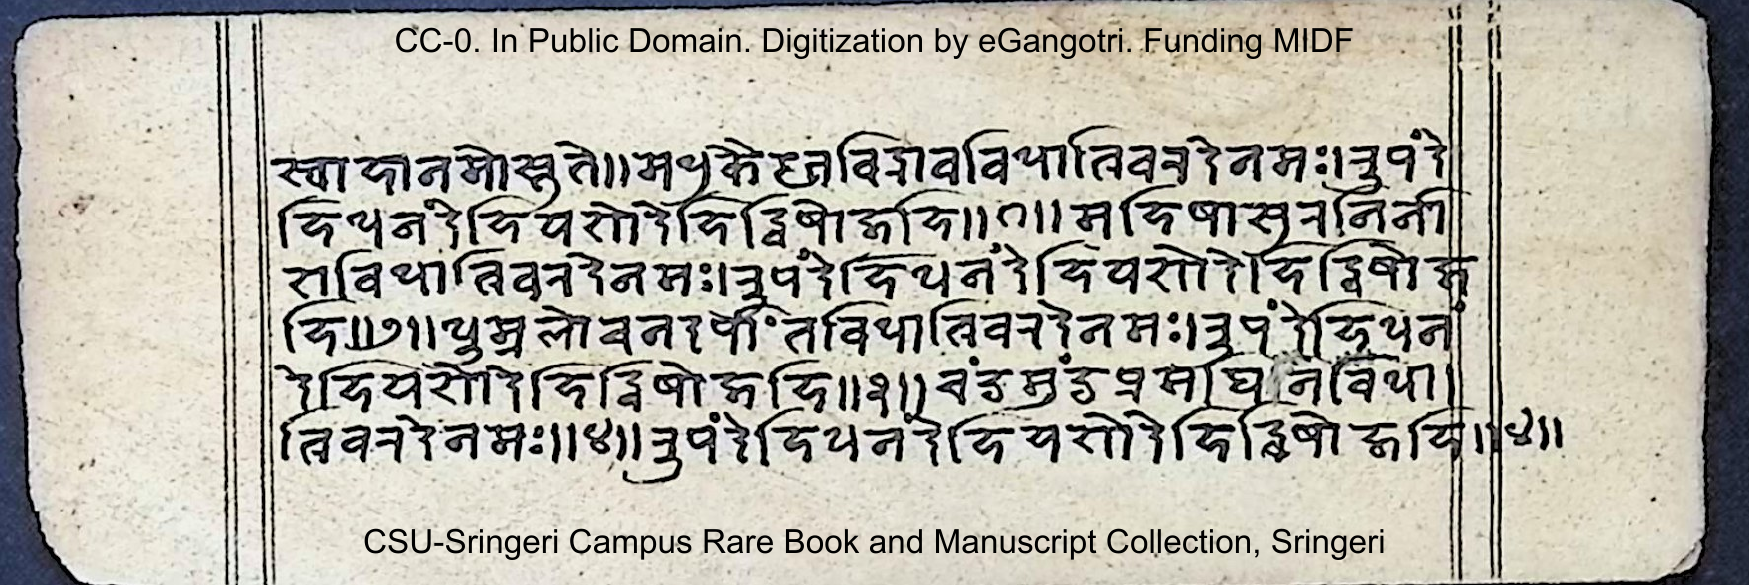 CC-0. In Public Domain. Digitization by eGangotri. Funding MIDF
स्वाहानमोस्तुते॥मधुकैटभविद्रावविधात्रिवरदेनमः।रुपंदे
हिधनंदेहियशोदेहिद्विषोजहि॥१॥महिषासुरनिर्ना
शविधात्रिवरदेनमः।रुपंदेहिधनंदेहियशोदेहिद्विषोज
हि॥२॥धुम्रलोचनदर्पांतविधात्रिवरदेनमः।रुपंदेहिधनं
देहियशोदेहिद्विषोजहि॥३॥चंडमुंडप्रमथिनिविधा
त्रिवरदेनमः॥४॥रुपंदेहिधनंदेहियशोदेहिद्विषोजहि॥४॥
CSU-Sringeri Campus Rare Book and Manuscript Collection, Sringeri